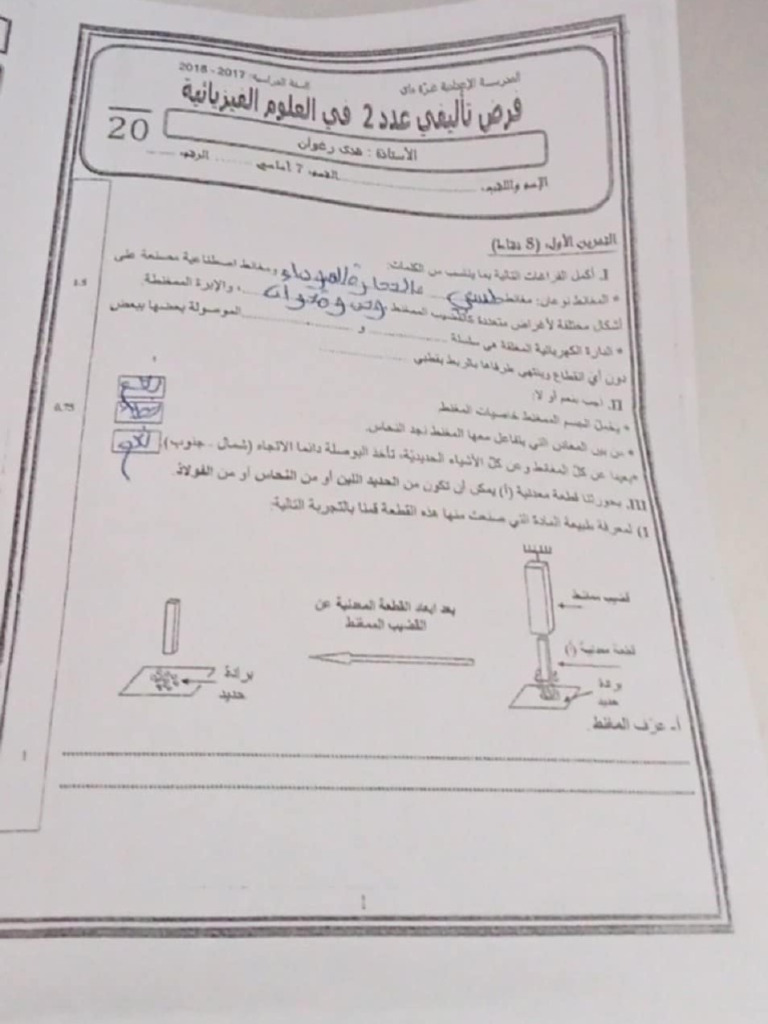 المدرسة الإعدادية غزة داي
السنة الدراسية: 2017 - 2018
فرض تأليفي عدد 2 في العلوم الفيزيائية
20
الأستاذة : هدى رغوان
الإسم واللقب: ............ القسم: 7 أساسي ........ الرقم: ......
التمرين الأول: (8 نقاط)
I. أكمل الفراغات التالية بما يناسب من الكلمات:
* المغانط نوعان: مغانط طبيعي كالحجارة السوداء ومغانط اصطناعية مصنعة على
1.5
أشكال مختلفة لأغراض متعددة كالقضيب الممغنط ، والإبرة الممغنطة.
* الدارة الكهربائية المغلقة هي سلسلة ............ و ............ الموصولة بعضها ببعض
دون أي انقطاع وينتهي طرفاها بالربط بقطبي ............
II. أجب بنعم أو لا:
* يفعل الجسم الممغنط خاصيات المغنط. نعم
0.75
* من بين المعادن التي يتفاعل معها المغنط نجد النحاس.
* بعيدا عن كل المغانط وعن كل الأشياء الحديدية، تأخذ البوصلة دائما الاتجاه (شمال - جنوب) نعم
III. بحوزتنا قطعة معدنية (أ) يمكن أن تكون من الحديد اللين أو من النحاس أو من الفولاذ.
1) لمعرفة طبيعة المادة التي صنعت منها هذه القطعة قمنا بالتجربة التالية:
قضيب ممغنط
بعد ابعاد القطعة المعدنية عن
القضيب الممغنط
قطعة معدنية (أ)
برادة
حديد
برادة
حديد
أ- عرّف المغنط.
1
1